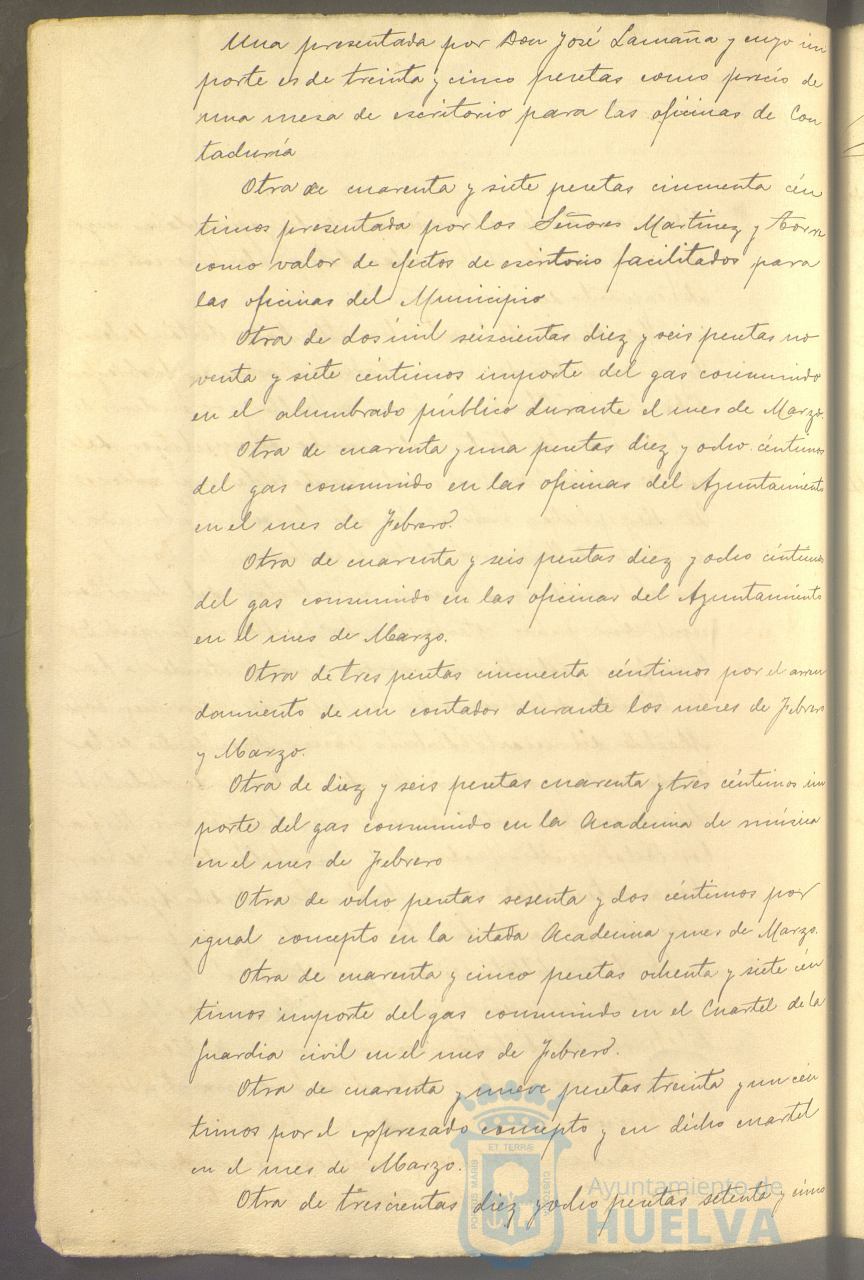 Una presentada por Don José Lamaña y cuyo im
porte es de treinta y cinco pesetas como precio de
una mesa de escritorio para las oficinas de Con
taduría
Otra de cuarenta y siete pesetas cincuenta cén
timos presentada por los Señores Martinez y
como valor de efectos de escritorio facilitados para
las oficinas del Municipio
Otra de dos mil seiscientas diez y seis pesetas no
venta y siete céntimos importe del gas consumido
en el alumbrado público durante el mes de Marzo.
Otra de cuarenta y una pesetas diez y ocho céntimos
del gas consumido en las oficinas del Ayuntamiento
en el mes de Febrero.
Otra de cuarenta y seis pesetas diez y ocho céntimos
del gas consumido en las oficinas del Ayuntamiento
en el mes de Marzo.
Otra de tres pesetas cincuenta céntimos por el arren
damiento de un contador durante los meses de Febrero
y Marzo.
Otra de diez y seis pesetas cuarenta y tres céntimos im
porte del gas consumido en la Academia de música
en el mes de Febrero
Otra de ocho pesetas sesenta y dos céntimos por
igual concepto en la citada Academia y mes de Marzo.
Otra de cuarenta y cinco pesetas ochenta y siete cén
timos importe del gas consumido en el Cuartel de la
Guardia civil en el mes de Febrero.
Otra de cuarenta y nueve pesetas treinta y un cén
timos por el expresado concepto y en dicho cuartel
en el mes de Marzo.
Otra de trescientas diez y ocho pesetas setenta y cinco
PORTUS MARIS
ET TERRÆ
CUSTODIA
Ayuntamiento de
HUELVA